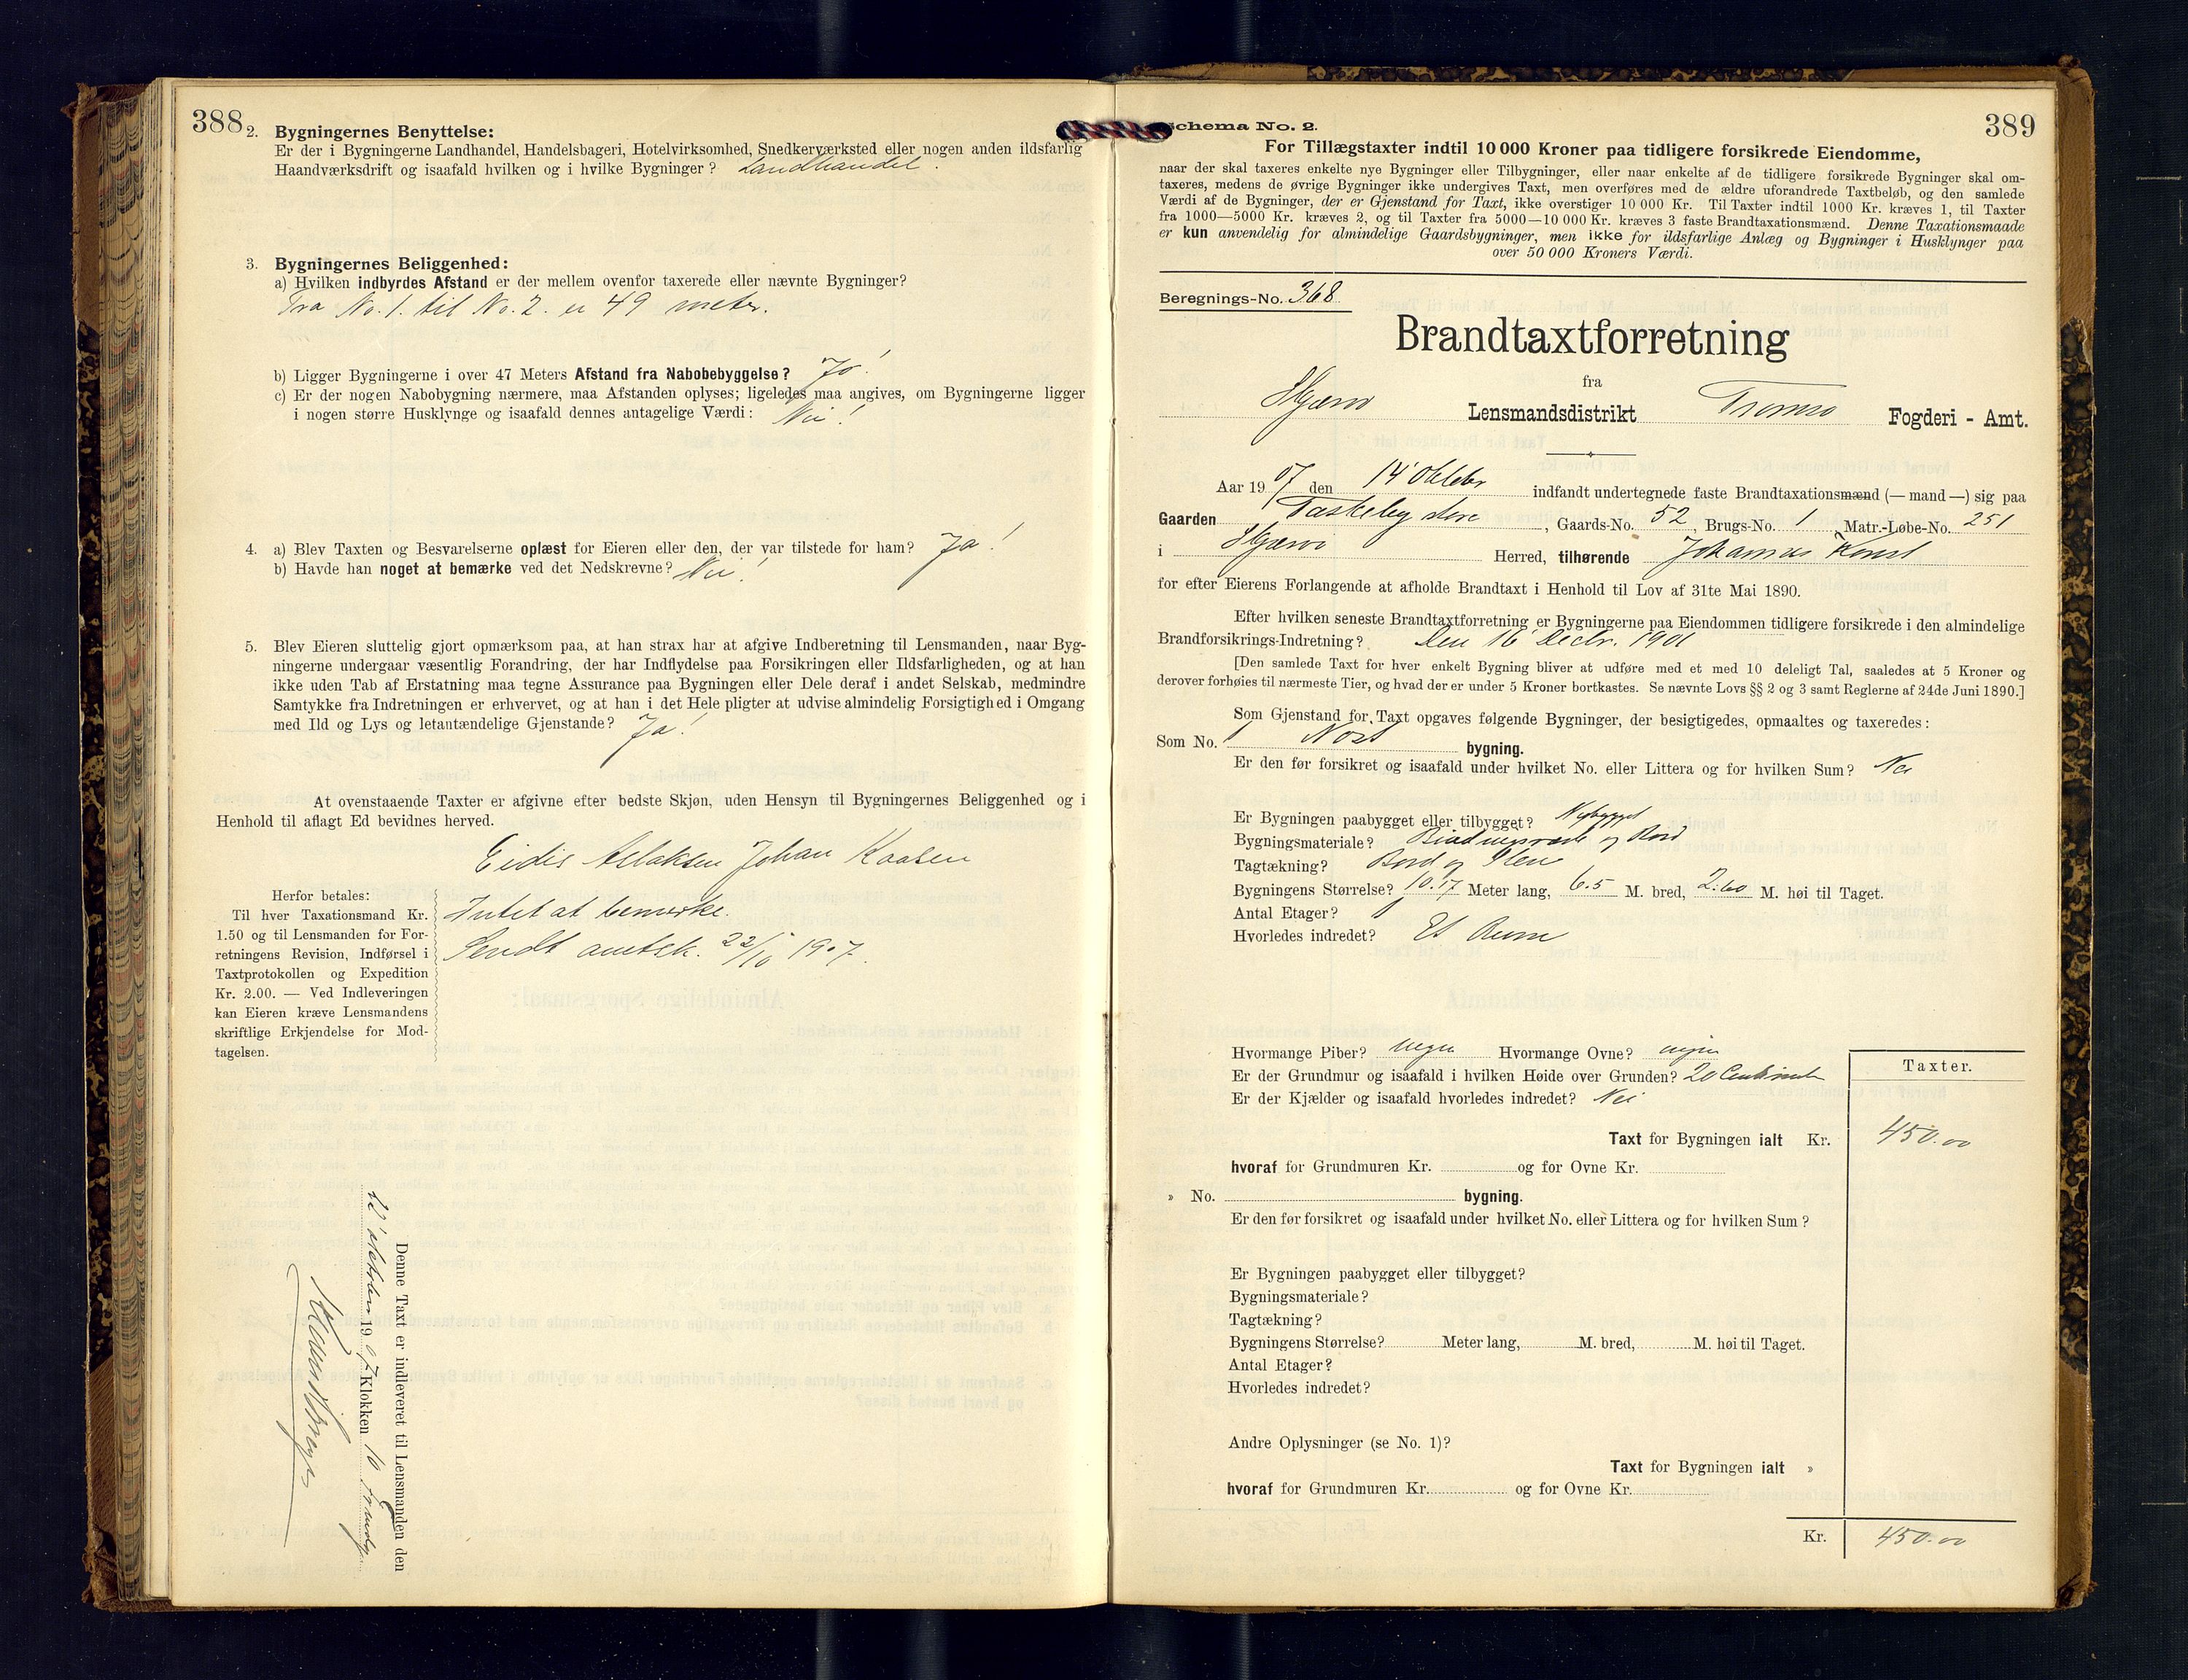 388
2. Bygningernes Benyttelse:
Er der i Bygningerne Landhandel, Handelsbageri, Hotelvirksomhed, Snedkerværksted eller nogen anden ildsfarlig
Haandværksdrift og isaafald hvilken og i hvilke Bygninger? Landhandel.
3. Bygningernes Beliggenhed:
a) Hvilken indbyrdes Afstand er der mellem ovenfor taxerede eller nævnte Bygninger?
Fra No. 1. til No. 2. er 49 meter.
b) Ligger Bygningerne i over 47 Meters Afstand fra Nabobebyggelse? Jo!
c) Er der nogen Nabobygning nærmere, maa Afstanden oplyses; ligeledes maa angives, om Bygningerne ligger
i nogen større Husklynge og isaafald dennes antagelige Værdi: Nei!
4. a) Blev Taxten og Besvarelserne oplæst for Eieren eller den, der var tilstede for ham? Ja!
b) Havde han noget at bemærke ved det Nedskrevne? Nei!
5. Blev Eieren sluttelig gjort opmærksom paa, at han strax har at afgive Indberetning til Lensmanden, naar Byg-
ningerne undergaar væsentlig Forandring, der har Indflydelse paa Forsikringen eller Ildsfarligheden, og at han
ikke uden Tab af Erstatning maa tegne Assurance paa Bygningen eller Dele deraf i andet Selskab, medmindre
Samtykke fra Indretningen er erhvervet, og at han i det Hele pligter at udvise almindelig Forsigtighed i Omgang
med Ild og Lys og letantændelige Gjenstande? Ja!
At ovenstaaende Taxter er afgivne efter bedste Skjøn, uden Hensyn til Bygningernes Beliggenhed og i
Henhold til aflagt Ed bevidnes herved.
Eidis Aslaksen Johan Kaasen
Herfor betales:
Til hver Taxationsmand Kr.
1.50 og til Lensmanden for For-
retningens Revision, Indførsel i
Taxtprotokollen og Expedition
Kr. 2.00. — Ved Indleveringen
kan Eieren kræve Lensmandens
skriftlige Erkjendelse for Mod-
tagelsen.
Intet at bemerke.
Sendt amtsk. 22/10 1907.
Denne Taxt er indleveret til Lensmanden den
oktober 1907 Klokken 10
389
Schema No. 2.
For Tillægstaxter indtil 10 000 Kroner paa tidligere forsikrede Eiendomme,
naar der skal taxeres enkelte nye Bygninger eller Tilbygninger, eller naar enkelte af de tidligere forsikrede Bygninger skal om-
taxeres, medens de øvrige Bygninger ikke undergives Taxt, men overføres med de ældre uforandrede Taxtbeløb, og den samlede
Værdi af de Bygninger, der er Gjenstand for Taxt, ikke overstiger 10 000 Kr. Til Taxter indtil 1000 Kr. kræves 1, til Taxter
fra 1000—5000 Kr. kræves 2, og til Taxter fra 5000—10 000 Kr. kræves 3 faste Brandtaxationsmænd. Denne Taxationsmaade
er kun anvendelig for almindelige Gaardsbygninger, men ikke for ildsfarlige Anlæg og Bygninger i Husklynger paa
over 50 000 Kroners Værdi.
Beregnings-No. 368
Brandtaxtforretning
fra
Skjærvø Lensmandsdistrikt Tromsø Fogderi - Amt.
Aar 1907 den 14 Oktober indfandt undertegnede faste Brandtaxationsmænd (— mand —) sig paa
Gaarden Taskeby store, Gaards-No. 52, Brugs-No. 1, Matr.-Løbe-No. 251
i Skjærvø Herred, tilhørende Johannes
for efter Eierens Forlangende at afholde Brandtaxt i Henhold til Lov af 31te Mai 1890.
Efter hvilken seneste Brandtaxtforretning er Bygningerne paa Eiendommen tidligere forsikrede i den almindelige
Brandforsikrings-Indretning? Den 16 Decbr. 1901
[Den samlede Taxt for hver enkelt Bygning bliver at udføre med et med 10 deleligt Tal, saaledes at 5 Kroner og
derover forhøies til nærmeste Tier, og hvad der er under 5 Kroner bortkastes. Se nævnte Lovs §§ 2 og 3 samt Reglerne af 24de Juni 1890.]
Som Gjenstand for Taxt opgaves følgende Bygninger, der besigtigedes, opmaaltes og taxeredes:
Som No. 1 Nøst bygning.
Er den før forsikret og isaafald under hvilket No. eller Littera og for hvilken Sum? Nei
Er Bygningen paabygget eller tilbygget? Nybygget
Bygningsmateriale? Bindingsverk og Bord
Tagtækning? Bord og
Bygningens Størrelse? 10.17 Meter lang, 6.5 M. bred, 2.60 M. høi til Taget.
Antal Etager? 1
Hvorledes indredet? Et Rum
Hvormange Piber? ingen Hvormange Ovne? ingen
Er der Grundmur og isaafald i hvilken Høide over Grunden? 20 Centimeter
Er der Kjælder og isaafald hvorledes indredet? Nei
Taxter.
Taxt for Bygningen ialt Kr. 450.00
hvoraf for Grundmuren Kr. og for Ovne Kr.
» No. bygning.
Er den før forsikret og isaafald under hvilket No. eller Littera og for hvilken Sum?
Er Bygningen paabygget eller tilbygget?
Bygningsmateriale?
Tagtækning?
Bygningens Størrelse? Meter lang, M. bred, M. høi til Taget.
Antal Etager?
Hvorledes indredet?
Andre Oplysninger (se No. 1)?
Taxt for Bygningen ialt »
hvoraf for Grundmuren Kr. og for Ovne Kr.
Kr. 450.00